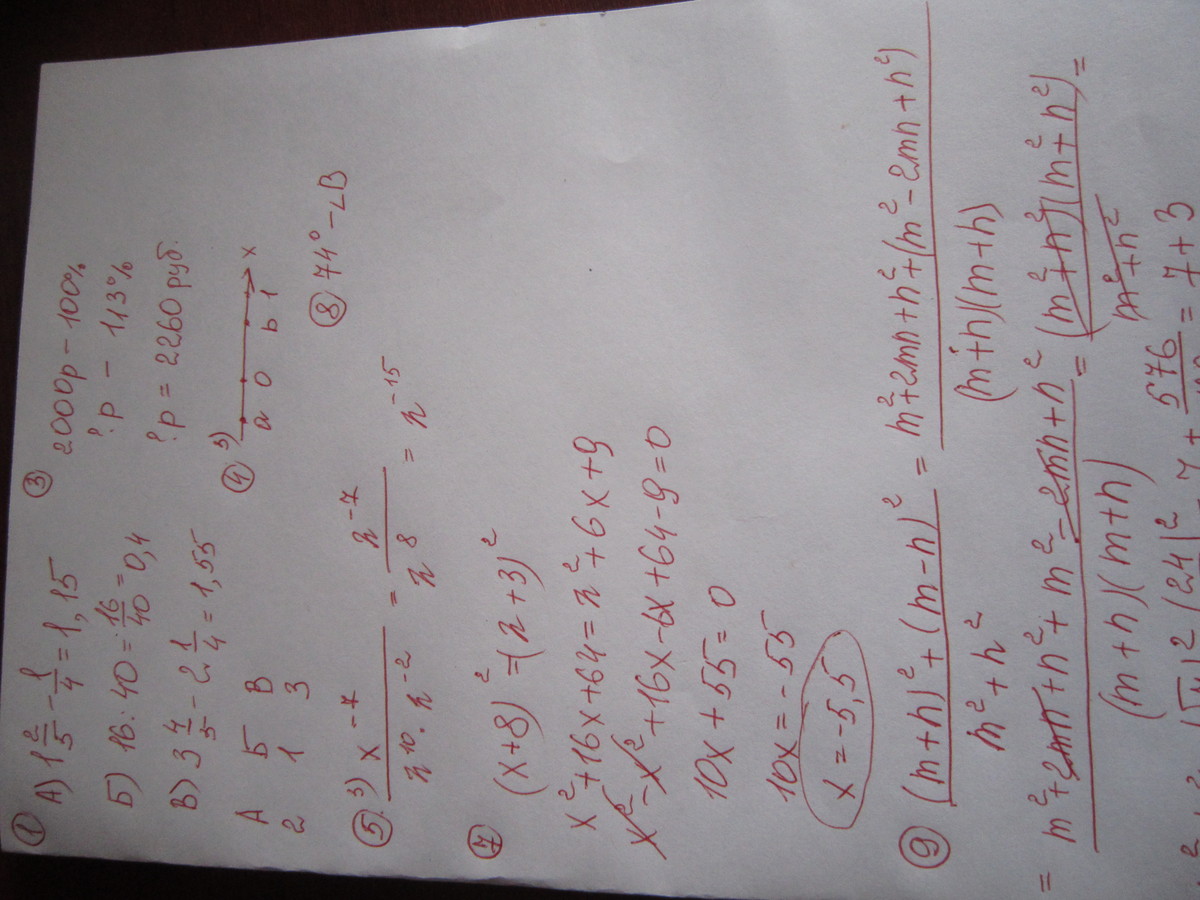 ① А) 1 2/5 - 1/4 = 1,15
Б) 16 : 40 = 16/40 = 0,4
В) 3 4/5 - 2 1/4 = 1,55
А Б В
2 1 3
③ 2000р - 100%
?р - 113%
?р = 2260 руб.
④ 3)
a 0 b 1 x
⑤ 3) x⁻⁷/(x¹⁰ · x⁻²) = x⁻⁷/x⁸ = x⁻¹⁵
⑧ 74° - ∠B
⑦ (x+8)² = (x+3)²
x² + 16x + 64 = x² + 6x + 9
x² - x² + 16x - 6x + 64 - 9 = 0
10x + 55 = 0
10x = -55
x = -5,5
⑨ ((m+n)² + (m-n)²)/(m² + n²) = (m² + 2mn + n² + (m² - 2mn + n²)/((m+n)(m+n)
= (m² + 2mn + n² + m² - 2mn + n²)/((m+n)(m+n)) = (m² + n²)(m² + n²)/(m² + n²) =
(24)² 7 + 576 = 7 + 3